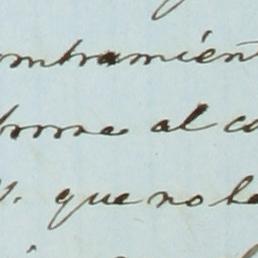 ombramient
forme al co
V. que no he